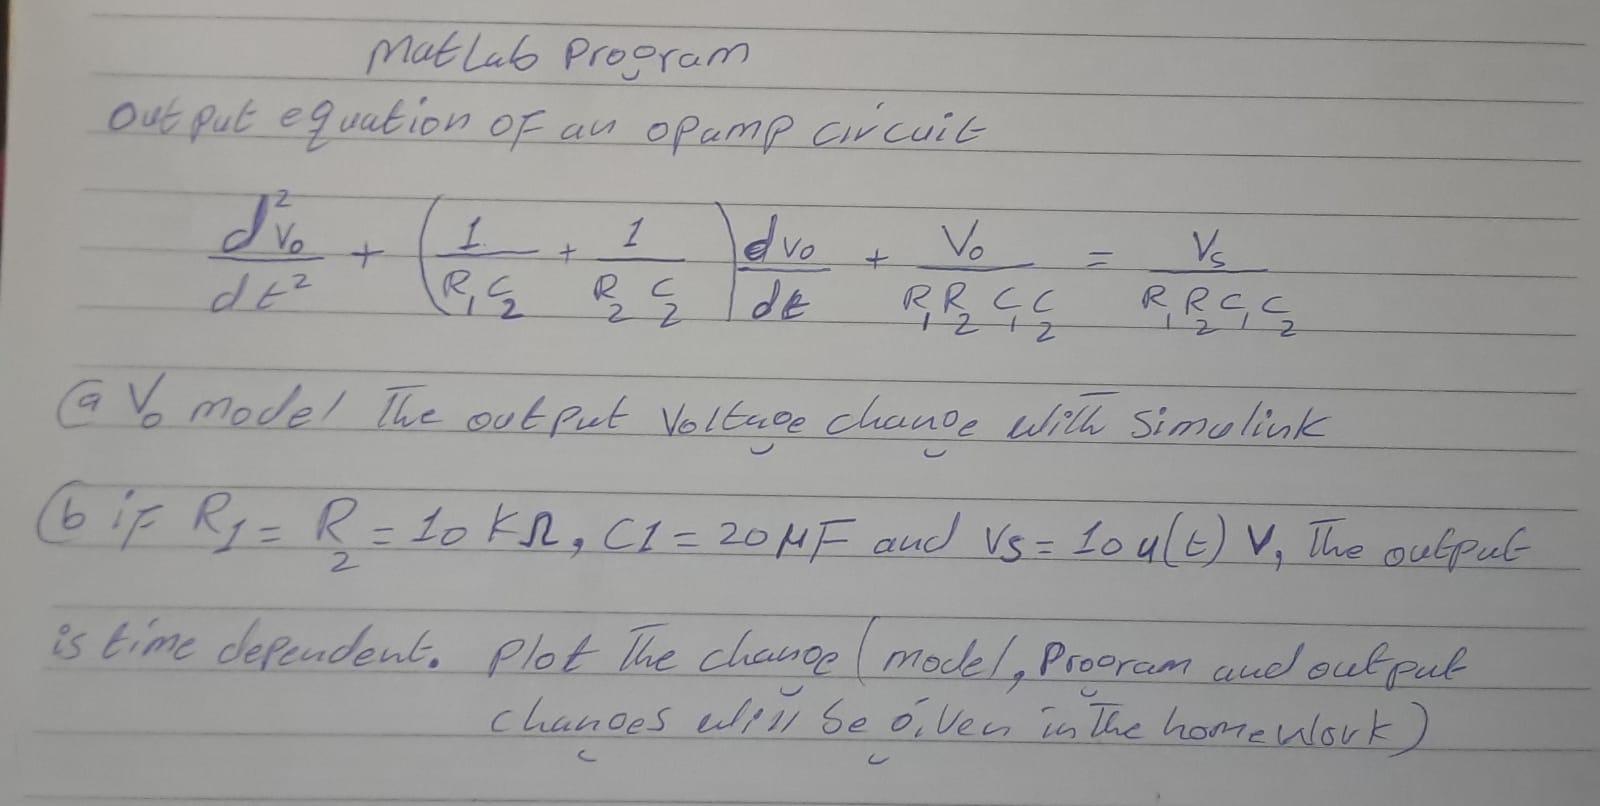 MatLab Program
output equation of an opamp circuit
d²Vo/dt² + (1/R₁C₂ + 1/R₂C₂) dvo/dt + Vo/R₁R₂C₁C₂ = Vs/R₁R₂C₁C₂
(a Vo model The output Voltage change with Simulink
(b if R1 = R₂ = 10 KΩ, C1 = 20 µF and Vs = 10 u(t) V, The output
is time dependent. Plot The change (model, Program and output
changes will be given in The homework)